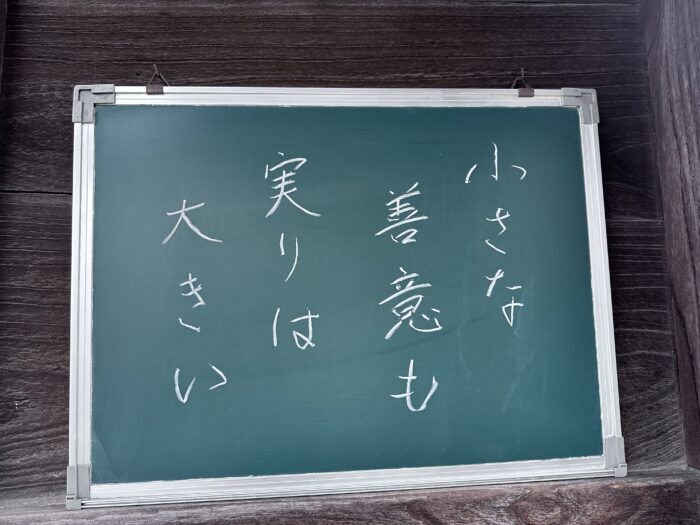 小さな
善意も
実りは
大きい